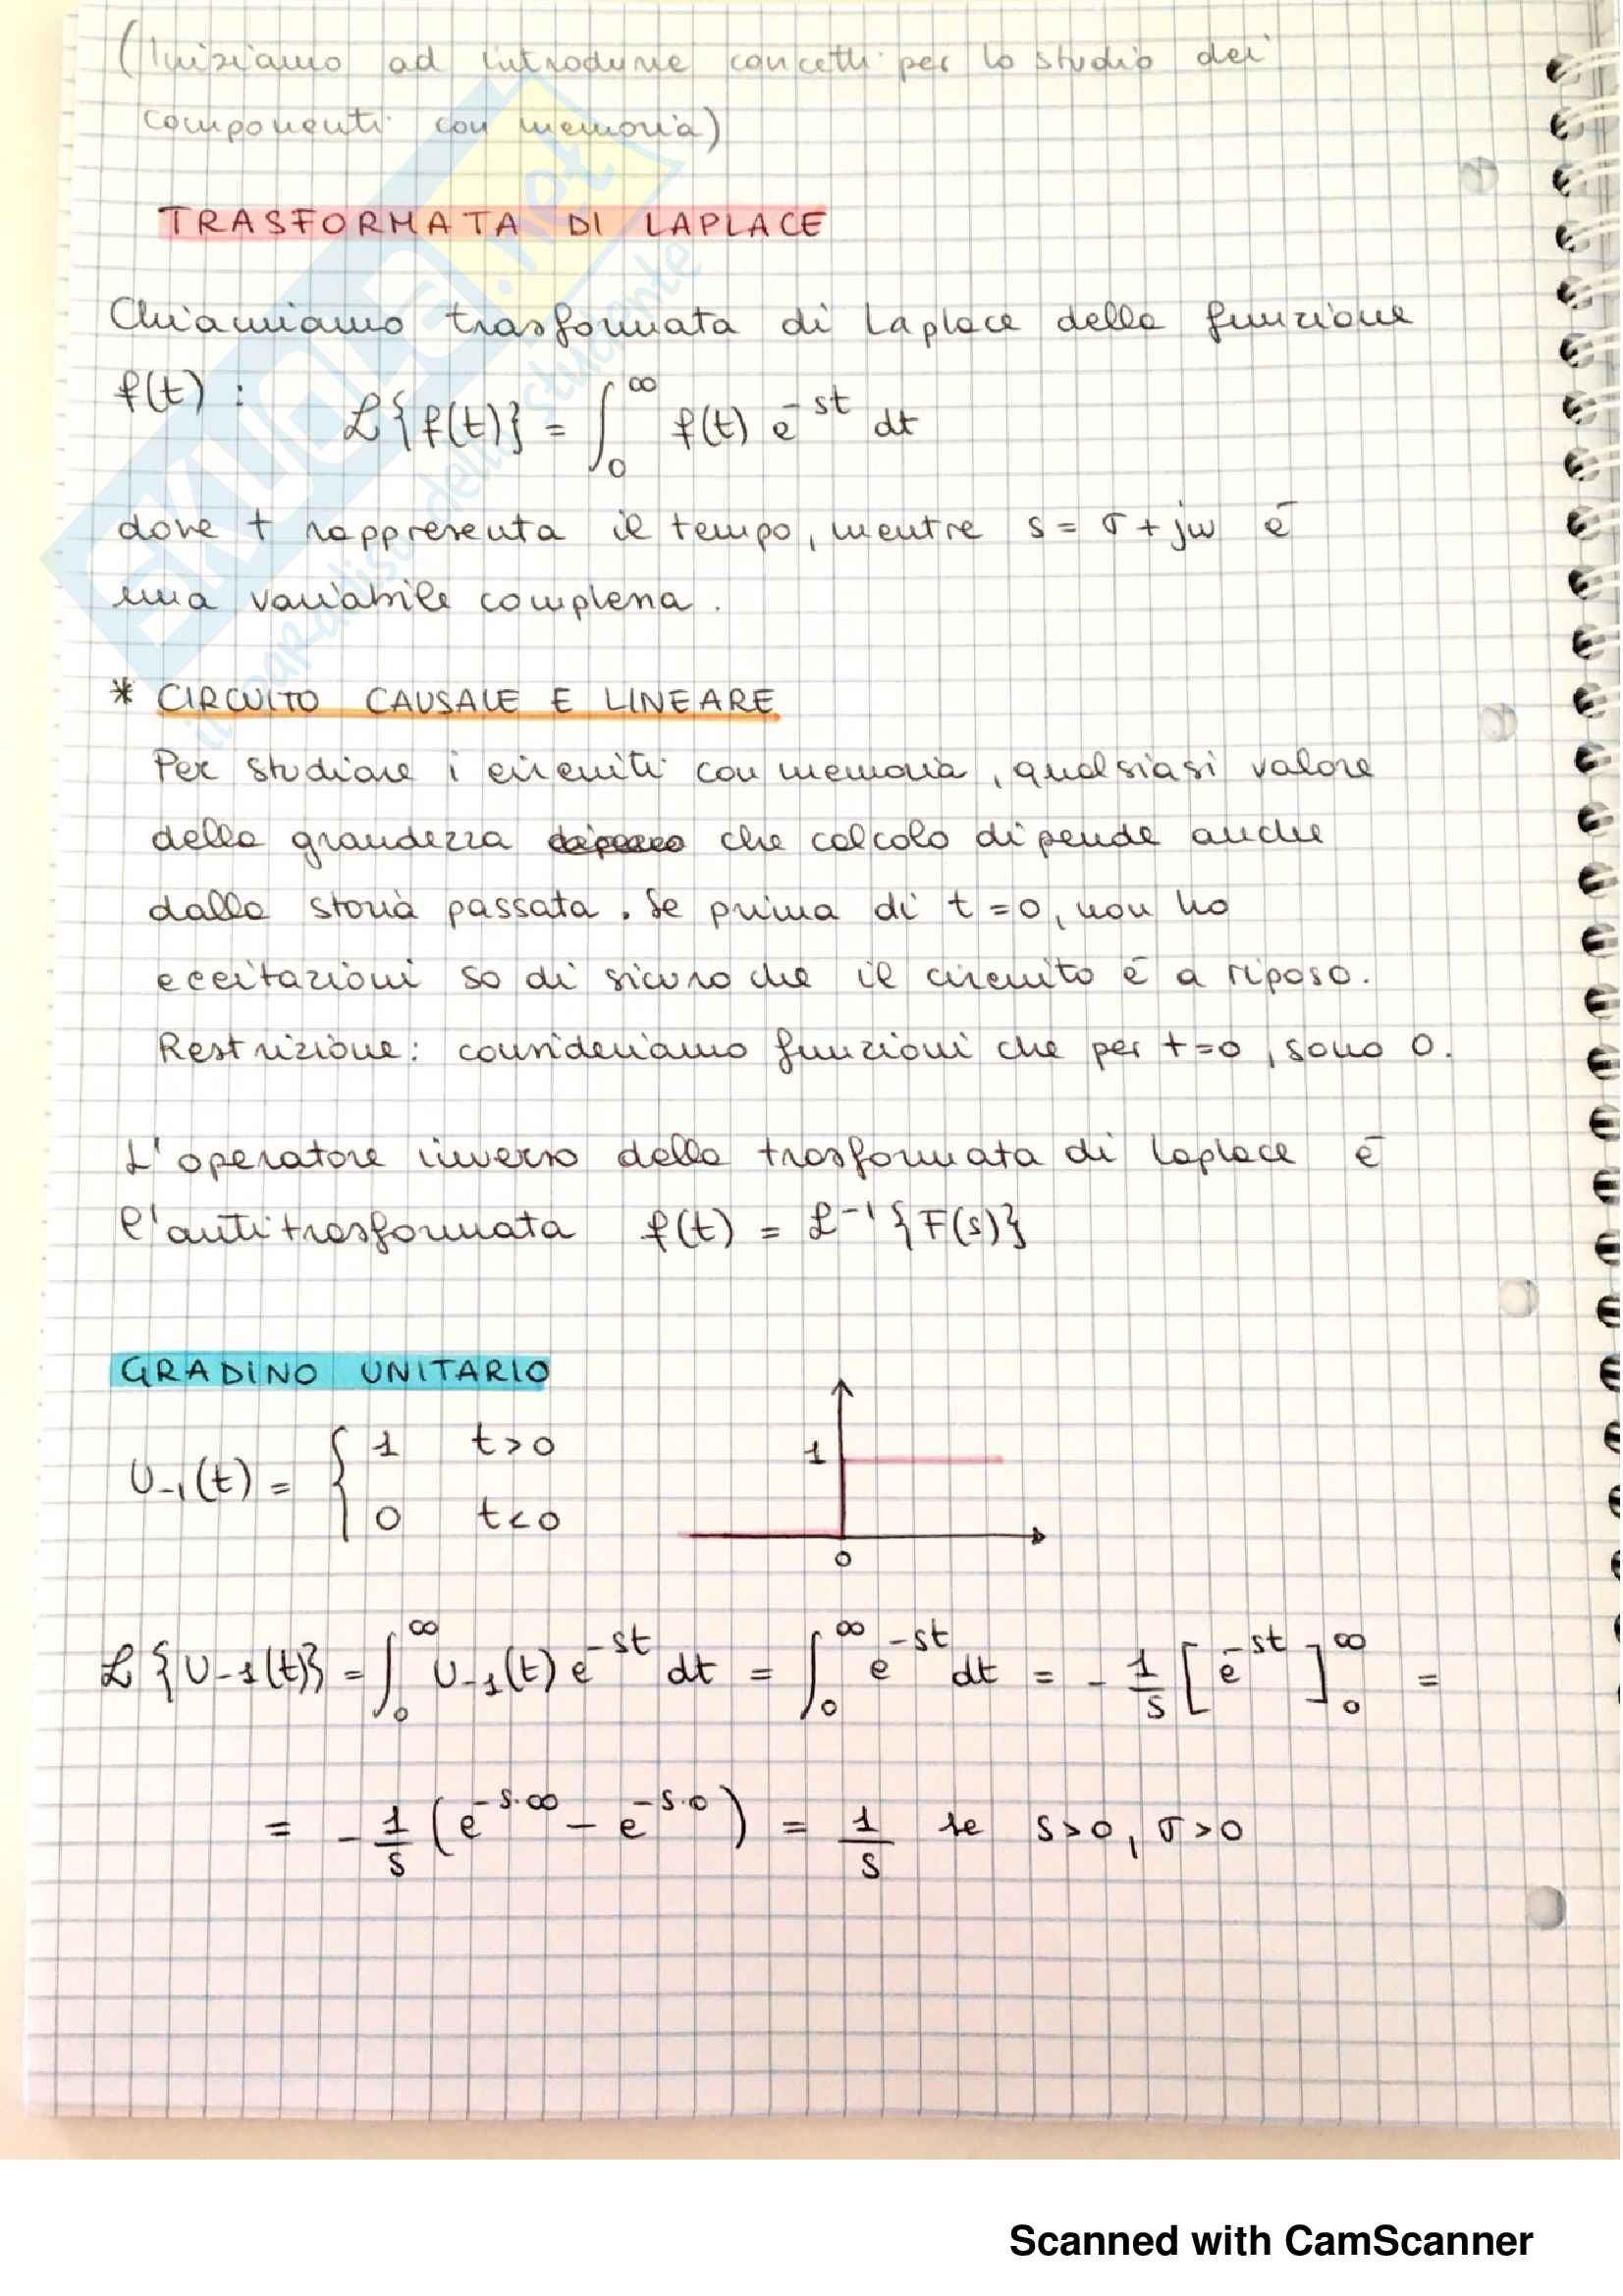 (Iniziamo ad introdurre concetti per lo studio dei
componenti con memoria)
TRASFORMATA DI LAPLACE
Chiamiamo trasformata di Laplace della funzione
f(t) :
ℒ{f(t)} = ∫₀^∞ f(t) e^-st dt
dove t rappresenta il tempo, mentre s = σ + jω è
una variabile complessa.
* CIRCUITO CAUSALE E LINEARE
Per studiare i circuiti con memoria, qualsiasi valore
della grandezza che calcolo dipende anche
dalla storia passata. Se prima di t=0, non ho
eccitazioni so di sicuro che il circuito è a riposo.
Restrizione: consideriamo funzioni che per t=0, sono 0.
L'operatore inverso della trasformata di Laplace è
l'antitrasformata f(t) = ℒ^-1 {F(s)}
GRADINO UNITARIO
U-1(t) = { 1 t>0
0 t<0
1
0
ℒ{U-1(t)} = ∫₀^∞ U-1(t) e^-st dt = ∫₀^∞ e^-st dt = - 1/s [e^-st]₀^∞ =
= - 1/s (e^-s·∞ - e^-s·0) = 1/s se s>0, σ>0
SKUOLA.net
il paradiso dello studente
Scanned with CamScanner